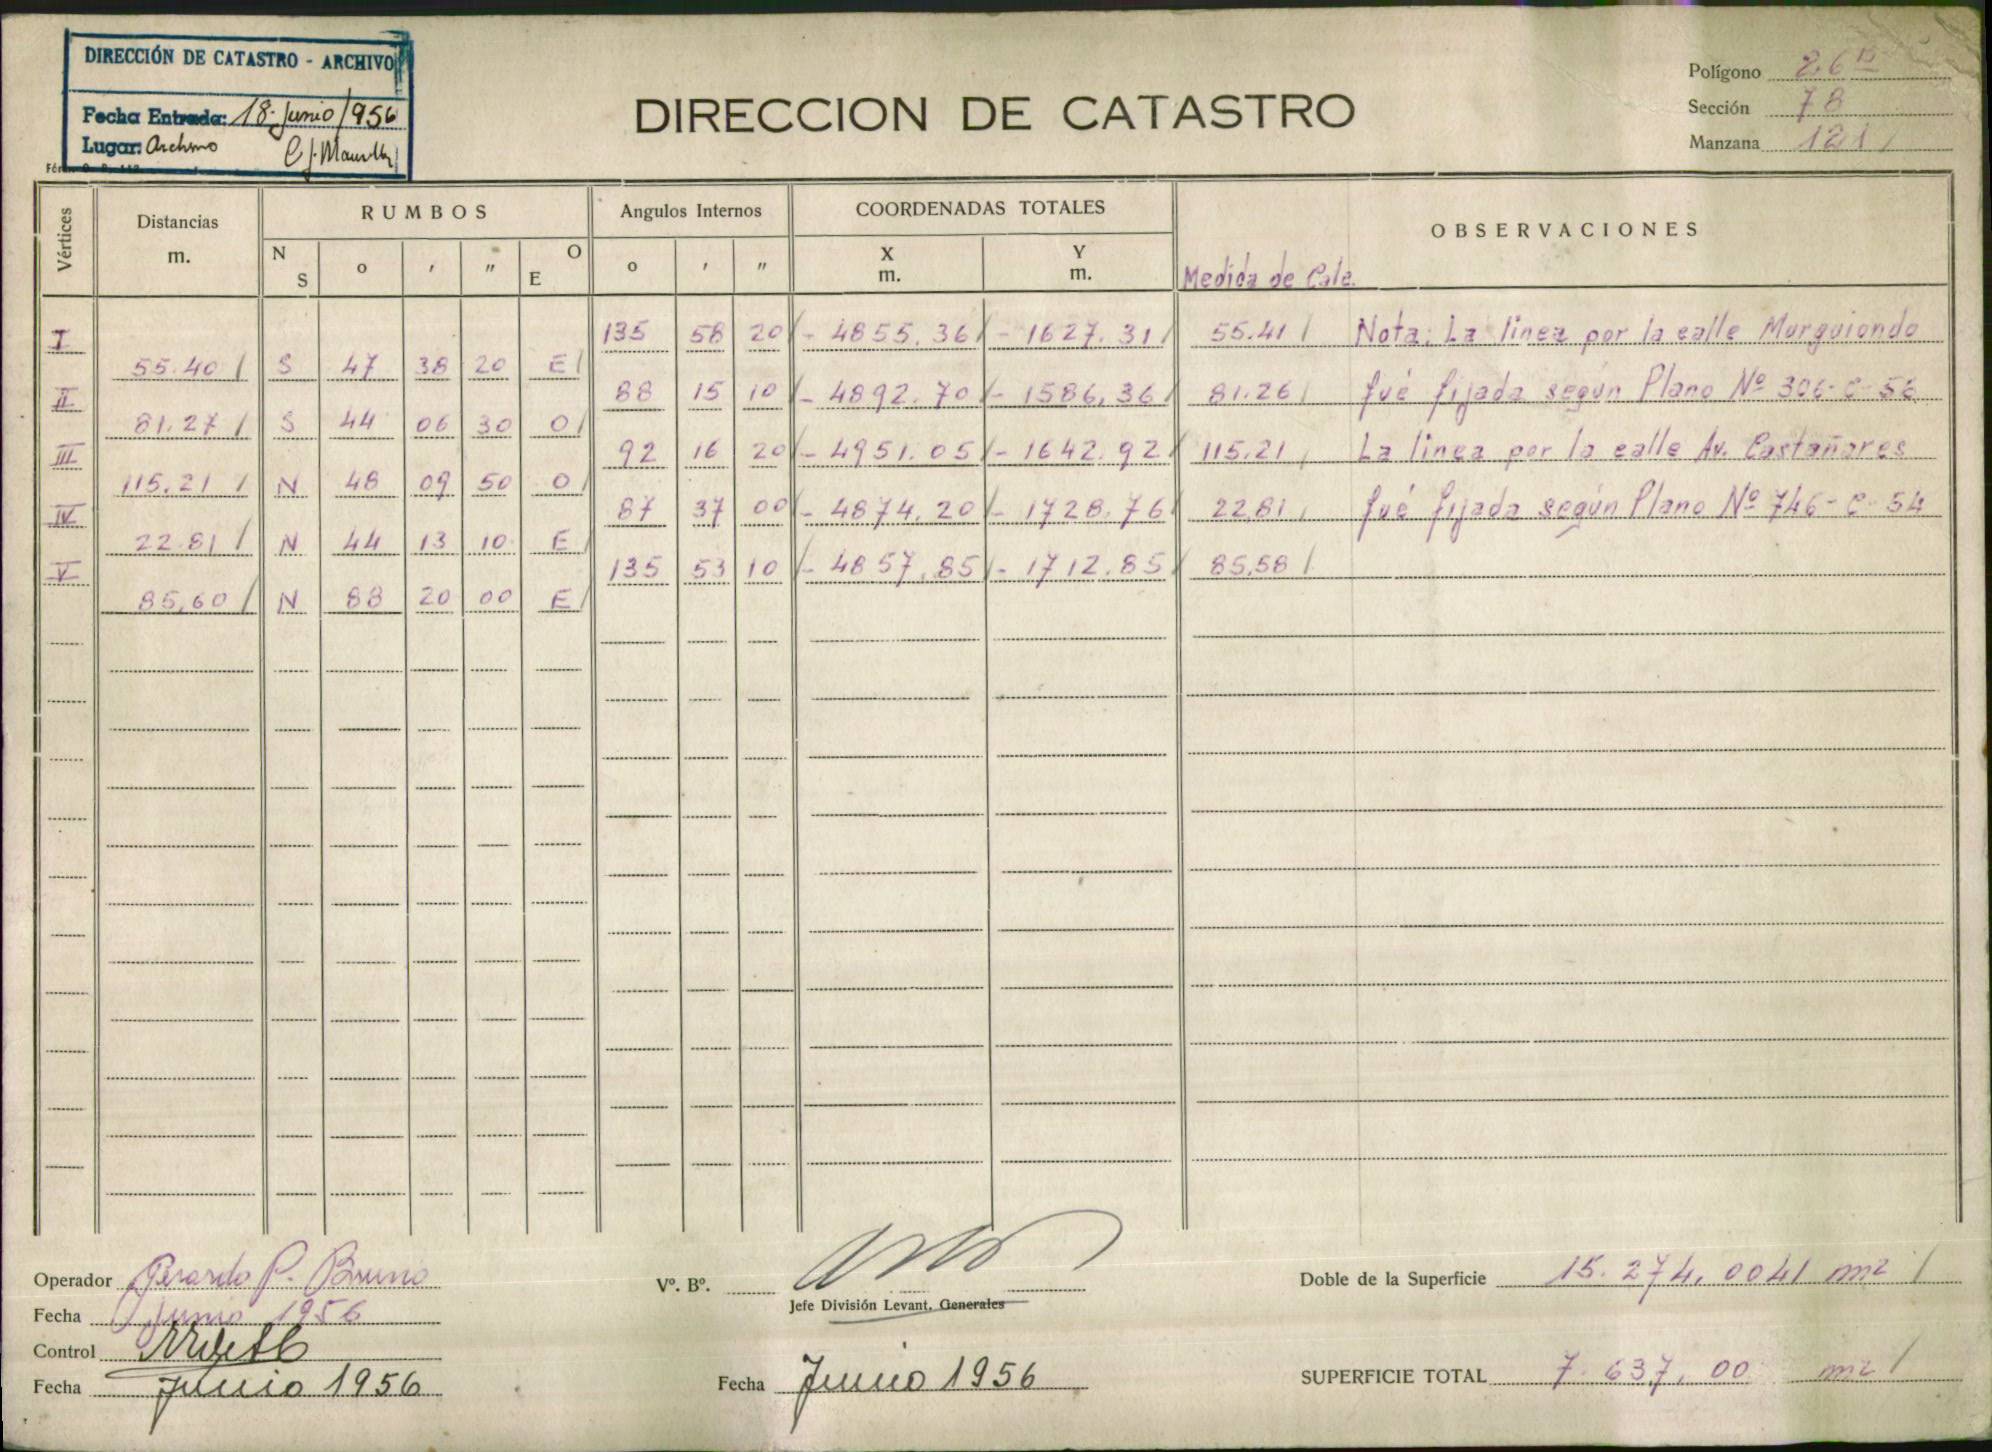 DIRECCIÓN DE CATASTRO - ARCHIVO
Fecha Entrada: 18·Junio/956
Lugar: Archivo
DIRECCION DE CATASTRO
Polígono 26
Sección 78
Manzana 121 /
Vértices Distancias m. RUMBOS Angulos Internos COORDENADAS TOTALES OBSERVACIONES
N S o ′ ″ O E o ′ ″ X m. Y m. Medida de Cale.
I 135 58 20/ - 4855.36/ - 1627.31/ 55.41 / Nota: La linea por la calle Murguiondo
55.40 / S 47 38 20 E/
II 88 15 10/ - 4892.70/ - 1586,36/ 81.26 / fué fijada según Plano Nº 306-C-56
81.27 / S 44 06 30 O/
III 92 16 20/ - 4951.05/ - 1642.92/ 115.21 / La linea por la calle Av. Castañares
115.21 / N 48 09 50 O/
IV 87 37 00/ - 4874,20/ - 1728.76/ 22,81 / fué fijada según Plano Nº 746-C-54
22.81 / N 44 13 10 E/
V 135 53 10/ - 4857,85/ - 1712.85/ 85,58 /
85,60 / N 88 20 00 E/
Operador Gerardo P. Bruno
Fecha Junio 1956
Control
Fecha Junio 1956
Vº. Bº.
Jefe División Levant. Generales
Fecha Junio 1956
Doble de la Superficie 15.274,0041 m2 /
SUPERFICIE TOTAL 7.637,00 m2 /